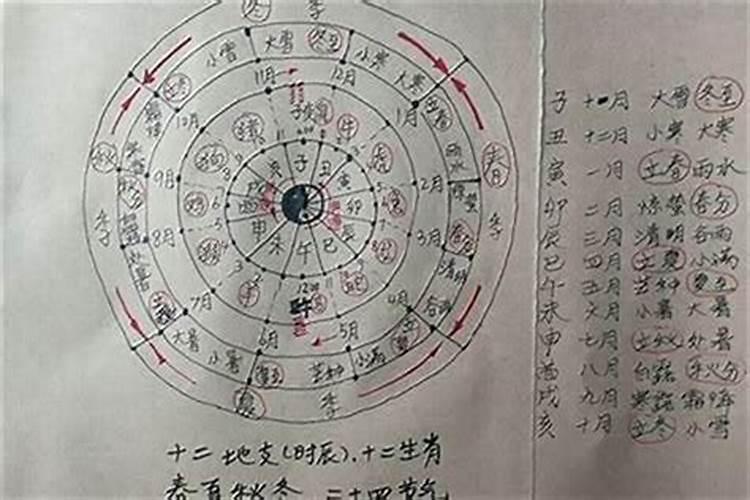 冬 季
小雪 大雪 冬至 小寒 大寒
立冬 11月 12月 立春
10月 子 鼠 牛 1月
猪 虎 雨水
秋 狗 亥 子 丑 寅 春
9月 戌 2月 惊蛰
秋分 鸡 酉 卯 兔
季 8月 猴 申 辰 龙 3月 春分 季
未 午 巳 清明
羊 12:00 蛇
立秋 7月 4月 谷雨
6月 5月 立夏
大暑 小暑 夏至 芒种 小满
夏 季
子 十一月 大雪 冬至
丑 十二月 小寒 大寒
寅 一月 立春 雨水
卯 二月 惊蛰 春分
辰 三月 清明 谷雨
巳 四月 立夏 小满
午 五月 芒种 夏至
未 六月 小暑 大暑
申 七月 立秋 处暑
酉 八月 白露 秋分
戌 九月 寒露 霜降
亥 十月 立冬 小雪
十二地支(时辰)、十二生肖
春夏秋冬 二十四节气